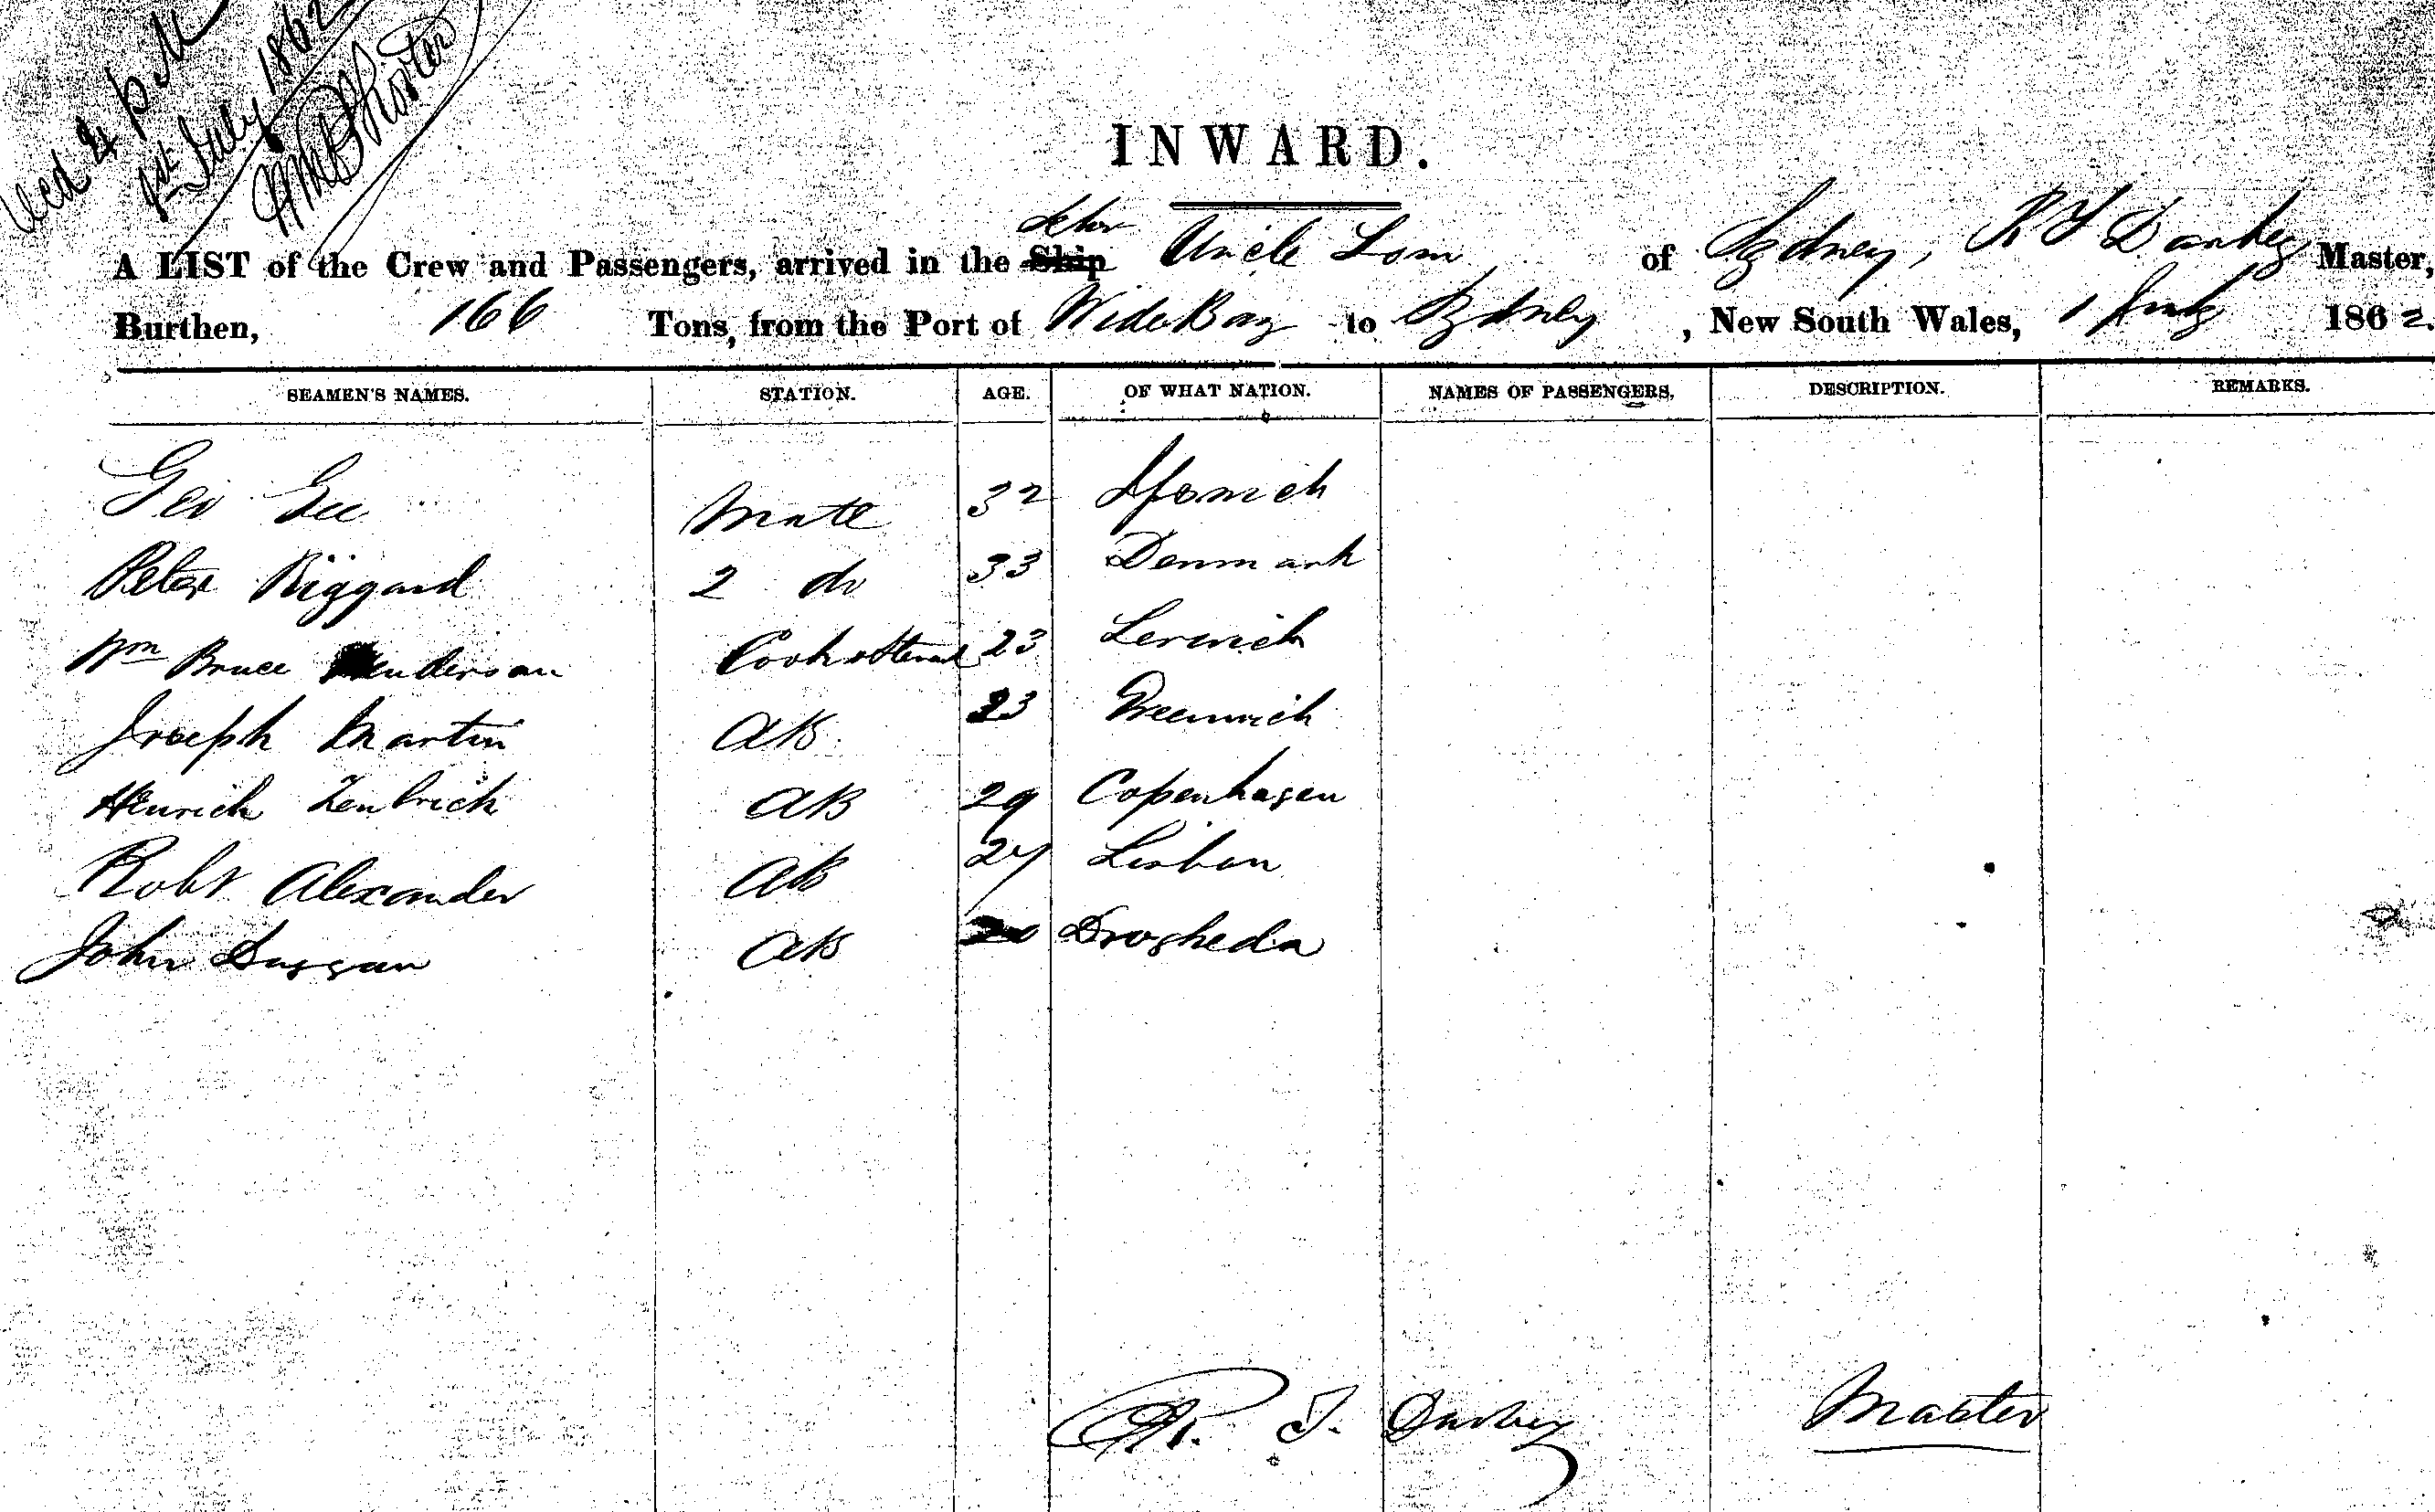 Recd 4 p M
1st July 1862
INWARD.
A LIST of the Crew and Passengers, arrived in the Ship Schr Uncle Tom of Sydney, R T Darbey Master,
Burthen, 166 Tons, from the Port of Wide Bay to Sydney, New South Wales, 1 July 1862.
SEAMEN'S NAMES. STATION. AGE. OF WHAT NATION. NAMES OF PASSENGERS. DESCRIPTION. REMARKS.
Geo Gee Mate 32 Ipswich
Peter Biggard 2 do 33 Denmark
Wm Bruce Henderson Cook & Steward 23 Lerwick
Joseph Martin AB 23 Greenwich
Henrich Zenbrich AB 29 Copenhagen
Robt Alexander AB 24 Lisbon
John Duggan AB 20 Drogheda
R. T. Darbey Master